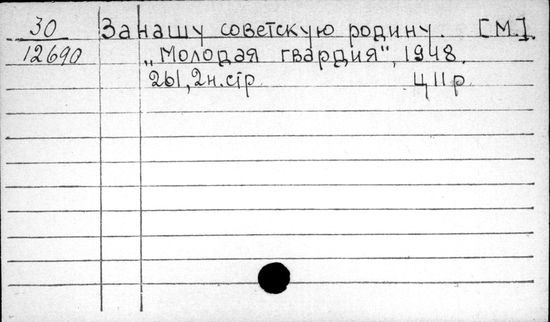 30 За нашу советскую родину. [М.].
12690 „Молодая гвардия", 1948.
261, 2н.стр ц 11 р